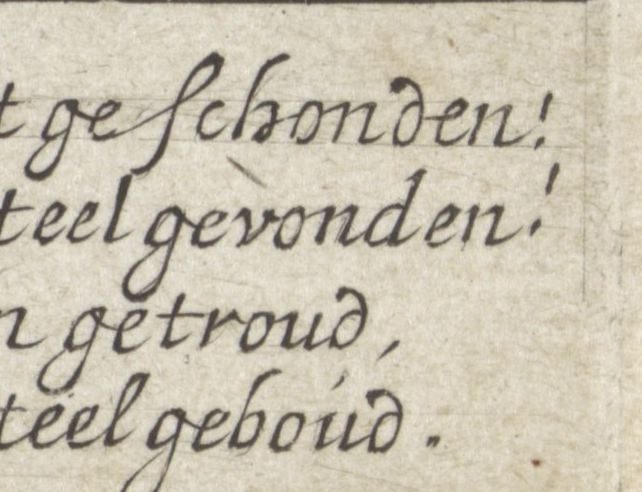 t geschonden!
teel gevonden!
n getroud,
teel geboud.